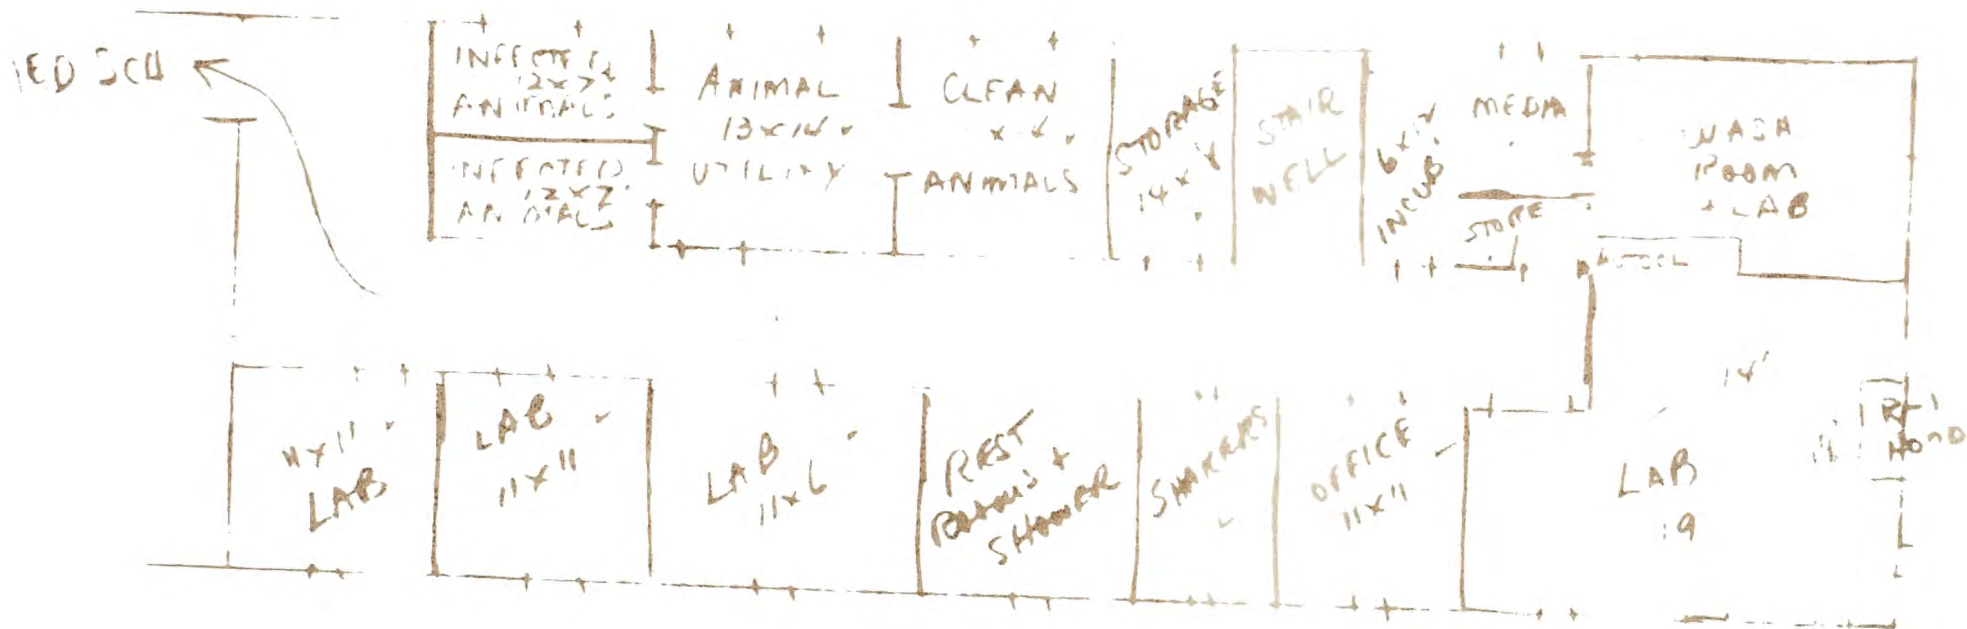 INFECTED
12x7
ANIMALS
INFECTED
12x7
ANIMALS
ANIMAL
13x14
UTILITY
CLEAN
ANIMALS
STORAGE
14x
STAIR
WELL
6x
INCUB.
MEDIA
STORE
WASH
ROOM
+ LAB
11x11
LAB
LAB
11x11
LAB
11x6
REST
ROOMS +
SHOWER
SHAKERS
OFFICE
11x11
14'
LAB
HOOD